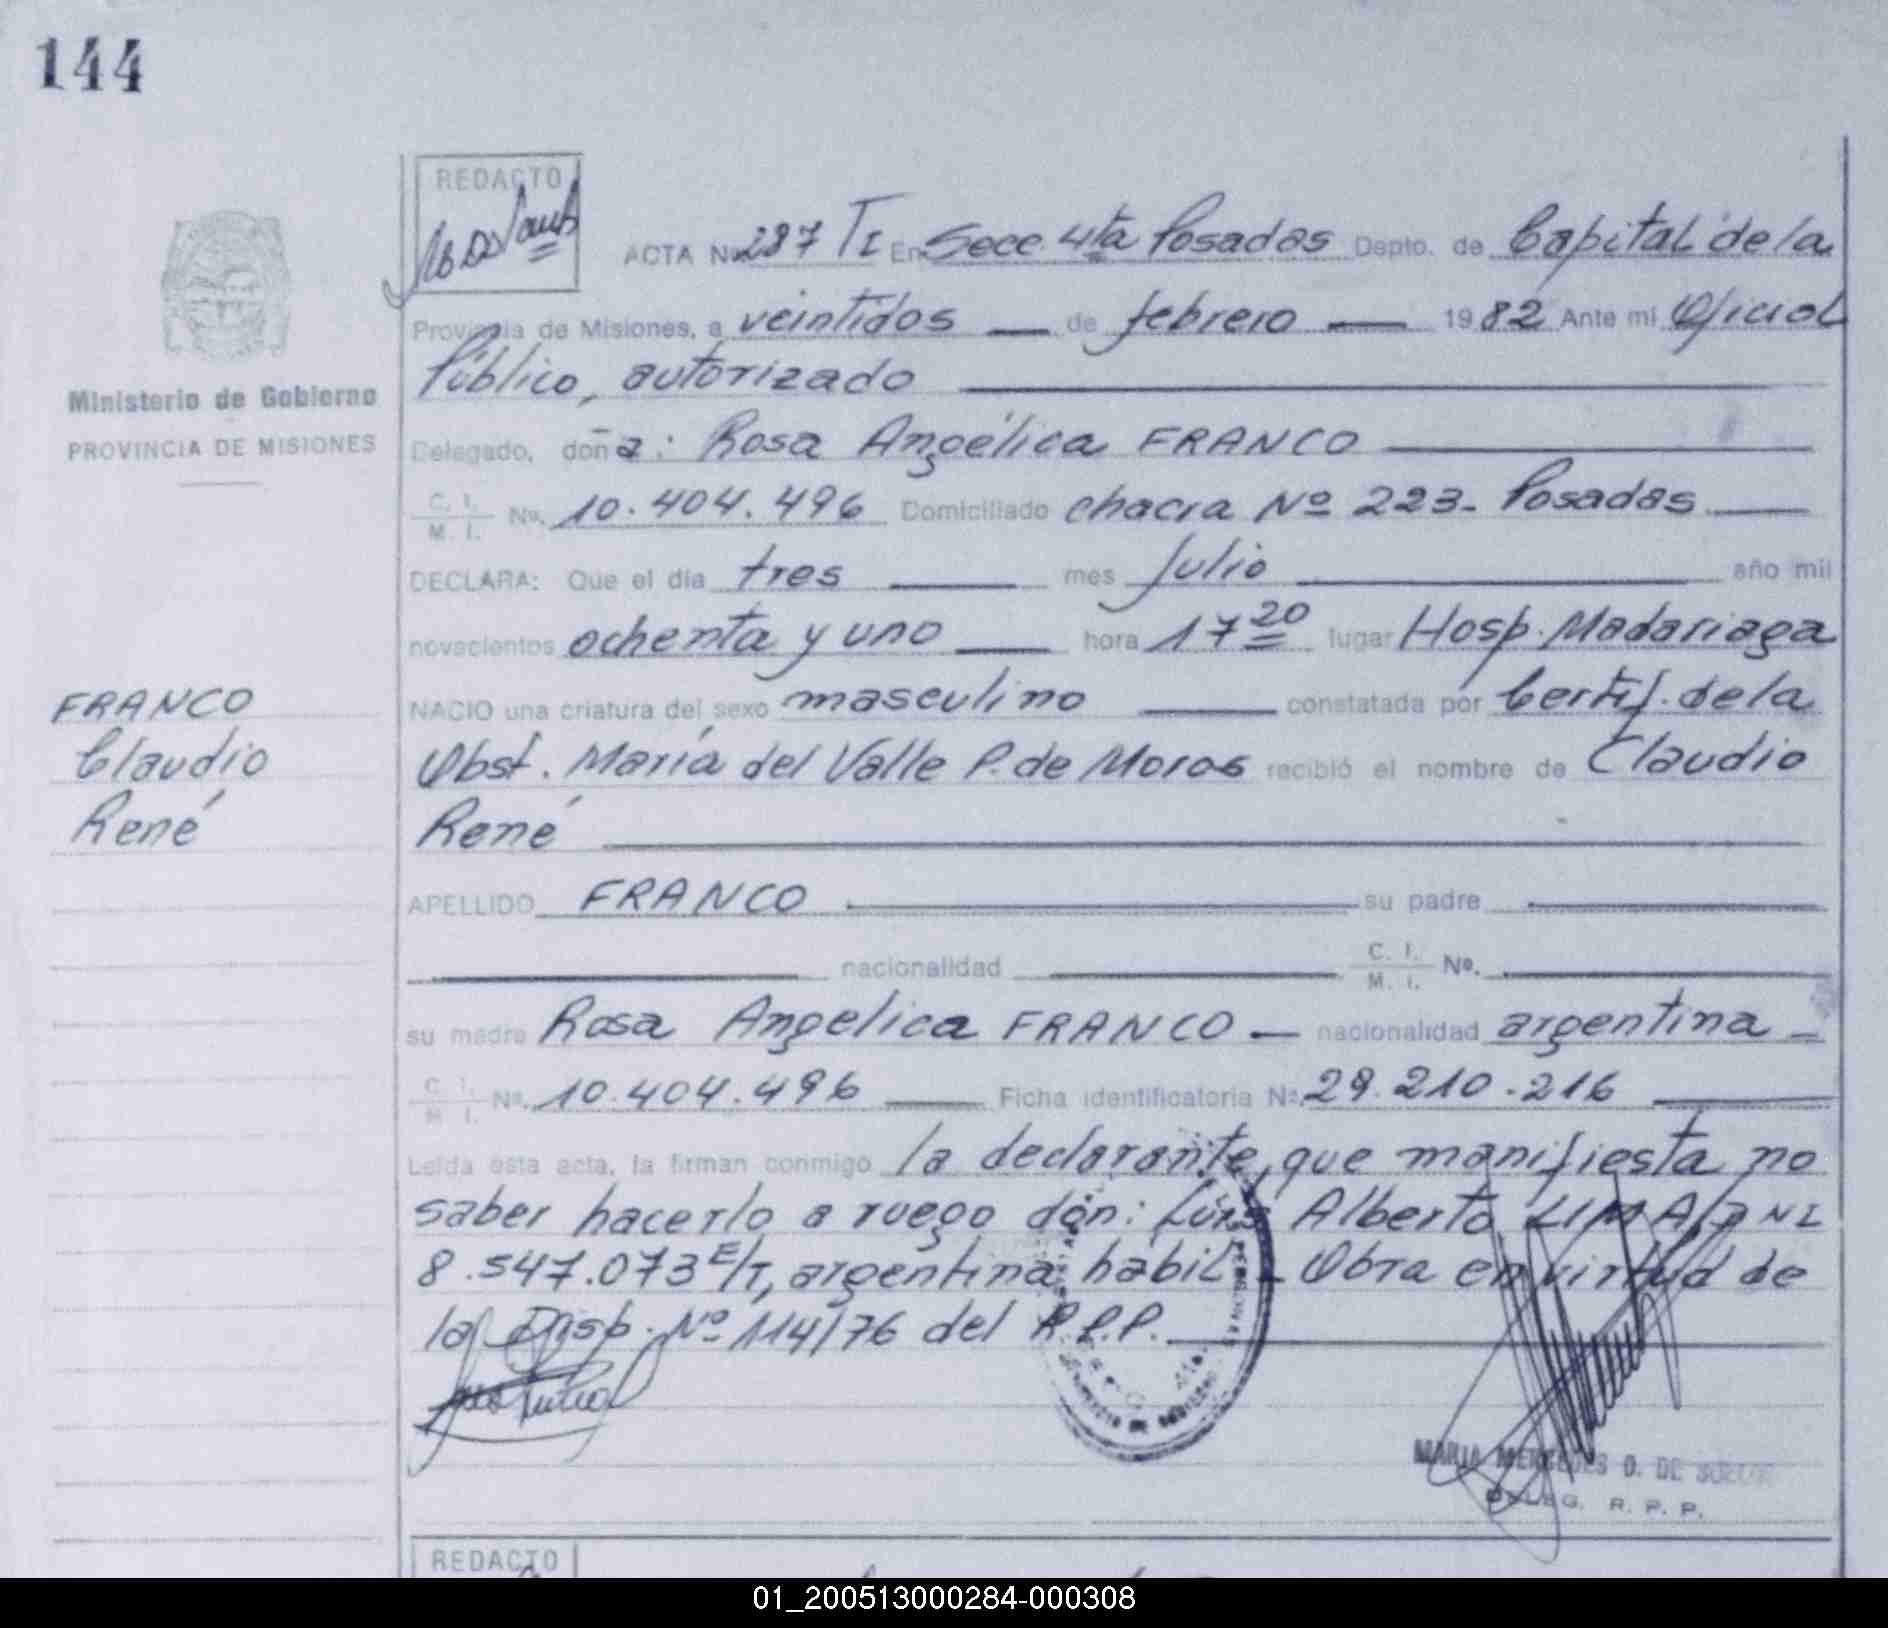 144
REDACTO
ACTA Nº 287 TI En Secc. 4ta Posadas Depto. de Capital de la
Provincia de Misiones, a veintidos de febrero 1982 Ante mi Oficial
Público, autorizado
Ministerio de Gobierno
PROVINCIA DE MISIONES
Delegado, doña: Rosa Angélica FRANCO
C. I. M. I. Nº. 10.404.496 Domiciliado chacra Nº 223- Posadas
DECLARA: Que el día tres mes julio año mil
novecientos ochenta y uno hora 17 20 lugar Hosp. Madariaga
NACIO una criatura del sexo masculino constatada por Certif. de la
Obst. María del Valle P. de Moras recibió el nombre de Claudio
René
FRANCO
Claudio
René
APELLIDO FRANCO su padre
nacionalidad C. I. M. I. Nº.
su madre Rosa Angelica FRANCO nacionalidad argentina
C. I. M. I. Nº. 10.404.496 Ficha identificatoria Nº. 29.210.216
Leída esta acta, la firman conmigo la declarante, que manifiesta no
saber hacerlo a ruego don: Luis Alberto LIMA, DNI
8.547.073 E/T, argentina, habil - Obra en virtud de
la Disp. Nº 114/76 del R.P.P.
MARIA MERCEDES O. DE
DELEG. R. P. P.
REDACTO
01_200513000284-000308